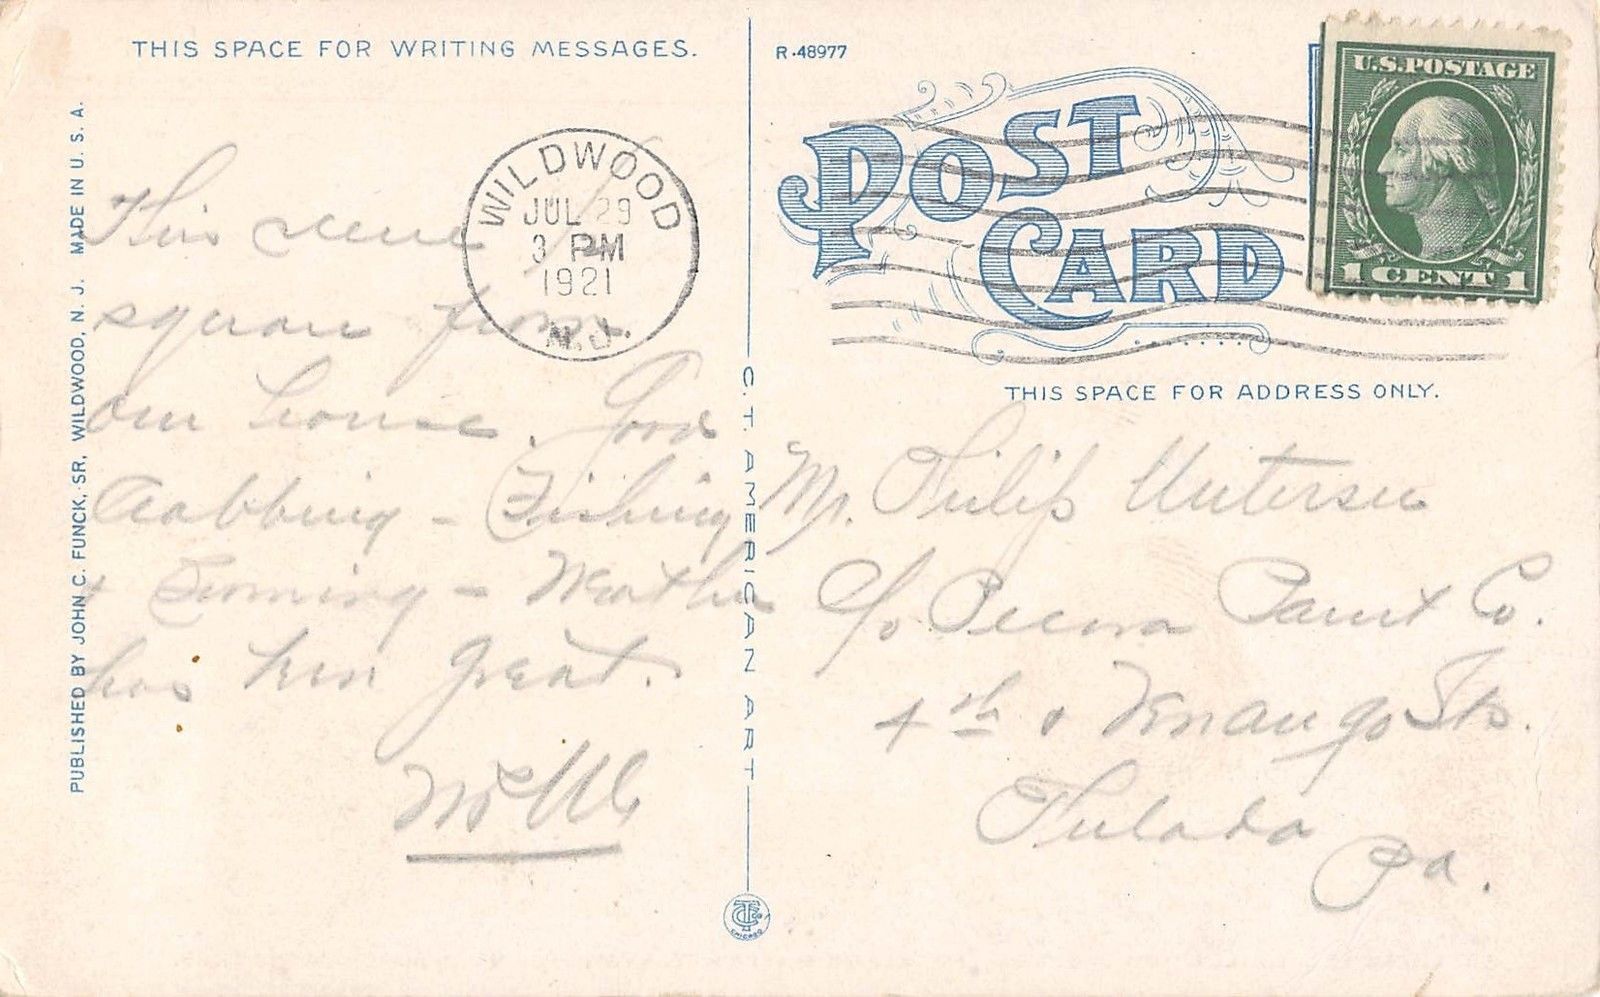 THIS SPACE FOR WRITING MESSAGES.
R-48977
U.S. POSTAGE
1 CENT 1
POST
CARD
WILDWOOD
JUL 29
3 PM
1921
N.J.
THIS SPACE FOR ADDRESS ONLY.
PUBLISHED BY JOHN C. FUNCK, SR, WILDWOOD, N. J. MADE IN U. S. A.
C. T. AMERICAN ART
This is one
square from
our house. Good
Crabbing - Fishing
& Swimming - Weather
has been great.
Mr. Philip
c/o Pecora Paint Co.
4th & Venango Sts.
Philada
Pa.
CHICAGO